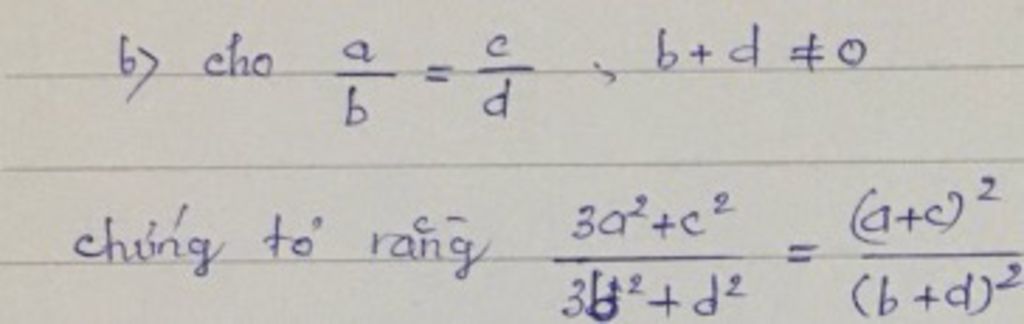 b) cho a/b = c/d , b + d ≠ 0
chứng tỏ rằng 3a²+c²/3b²+d² = (a+c)²/(b+d)²